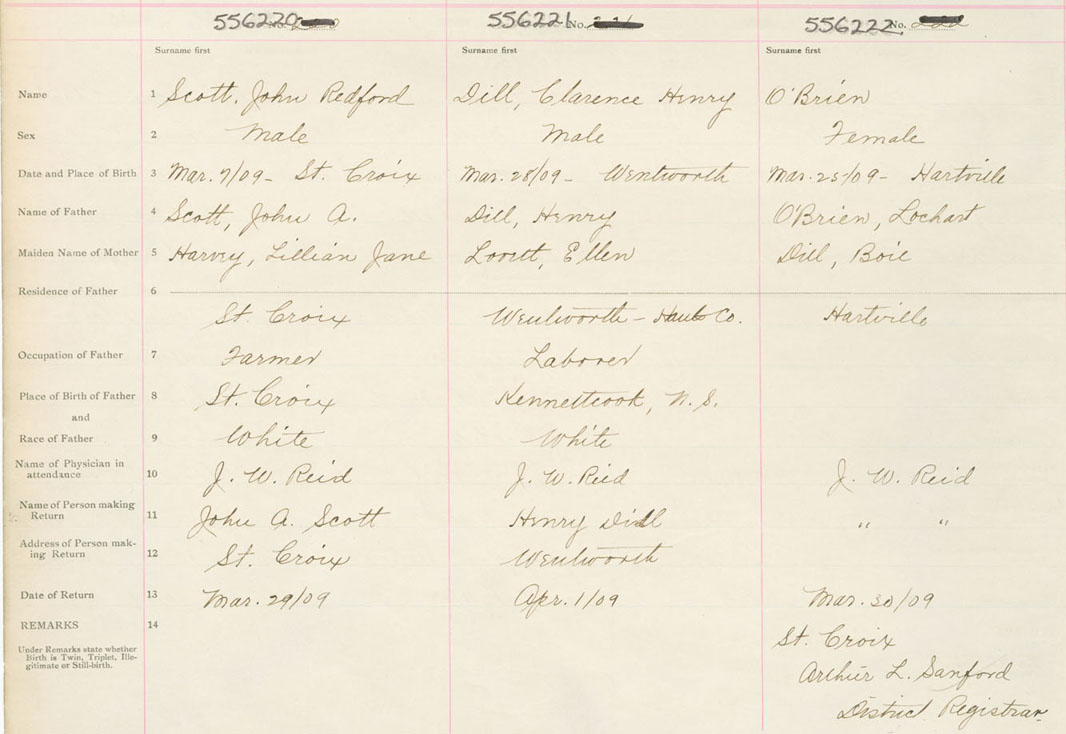 556220 No.
556221 No.
556222 No.
Surname first Surname first Surname first
Name 1 Scott, John Redford Dill, Clarence Henry O'Brien
Sex 2 Male Male Female
Date and Place of Birth 3 Mar. 7/09 - St. Croix Mar. 28/09 - Wentworth Mar. 25/09 - Hartville
Name of Father 4 Scott, John A. Dill, Henry O'Brien, Lochart
Maiden Name of Mother 5 Harvey, Lillian Jane Ellen Dill,
Residence of Father 6
St. Croix Wentworth - Hants Co. Hartville
Occupation of Father 7 Farmer Laborer
Place of Birth of Father 8 St. Croix Kennetcook, N.S.
and
Race of Father 9 White White
Name of Physician in
attendance 10 J. W. Reid J. W. Reid J. W. Reid
Name of Person making
Return 11 John A. Scott Henry Dill " "
Address of Person mak-
ing Return 12 St. Croix Wentworth
Date of Return 13 Mar. 29/09 Apr. 1/09 Mar. 30/09
REMARKS 14
St. Croix
Under Remarks state whether
Birth is Twin, Triplet, Ille-
gitimate or Still-birth.
Arthur L. Sanford
District Registrar